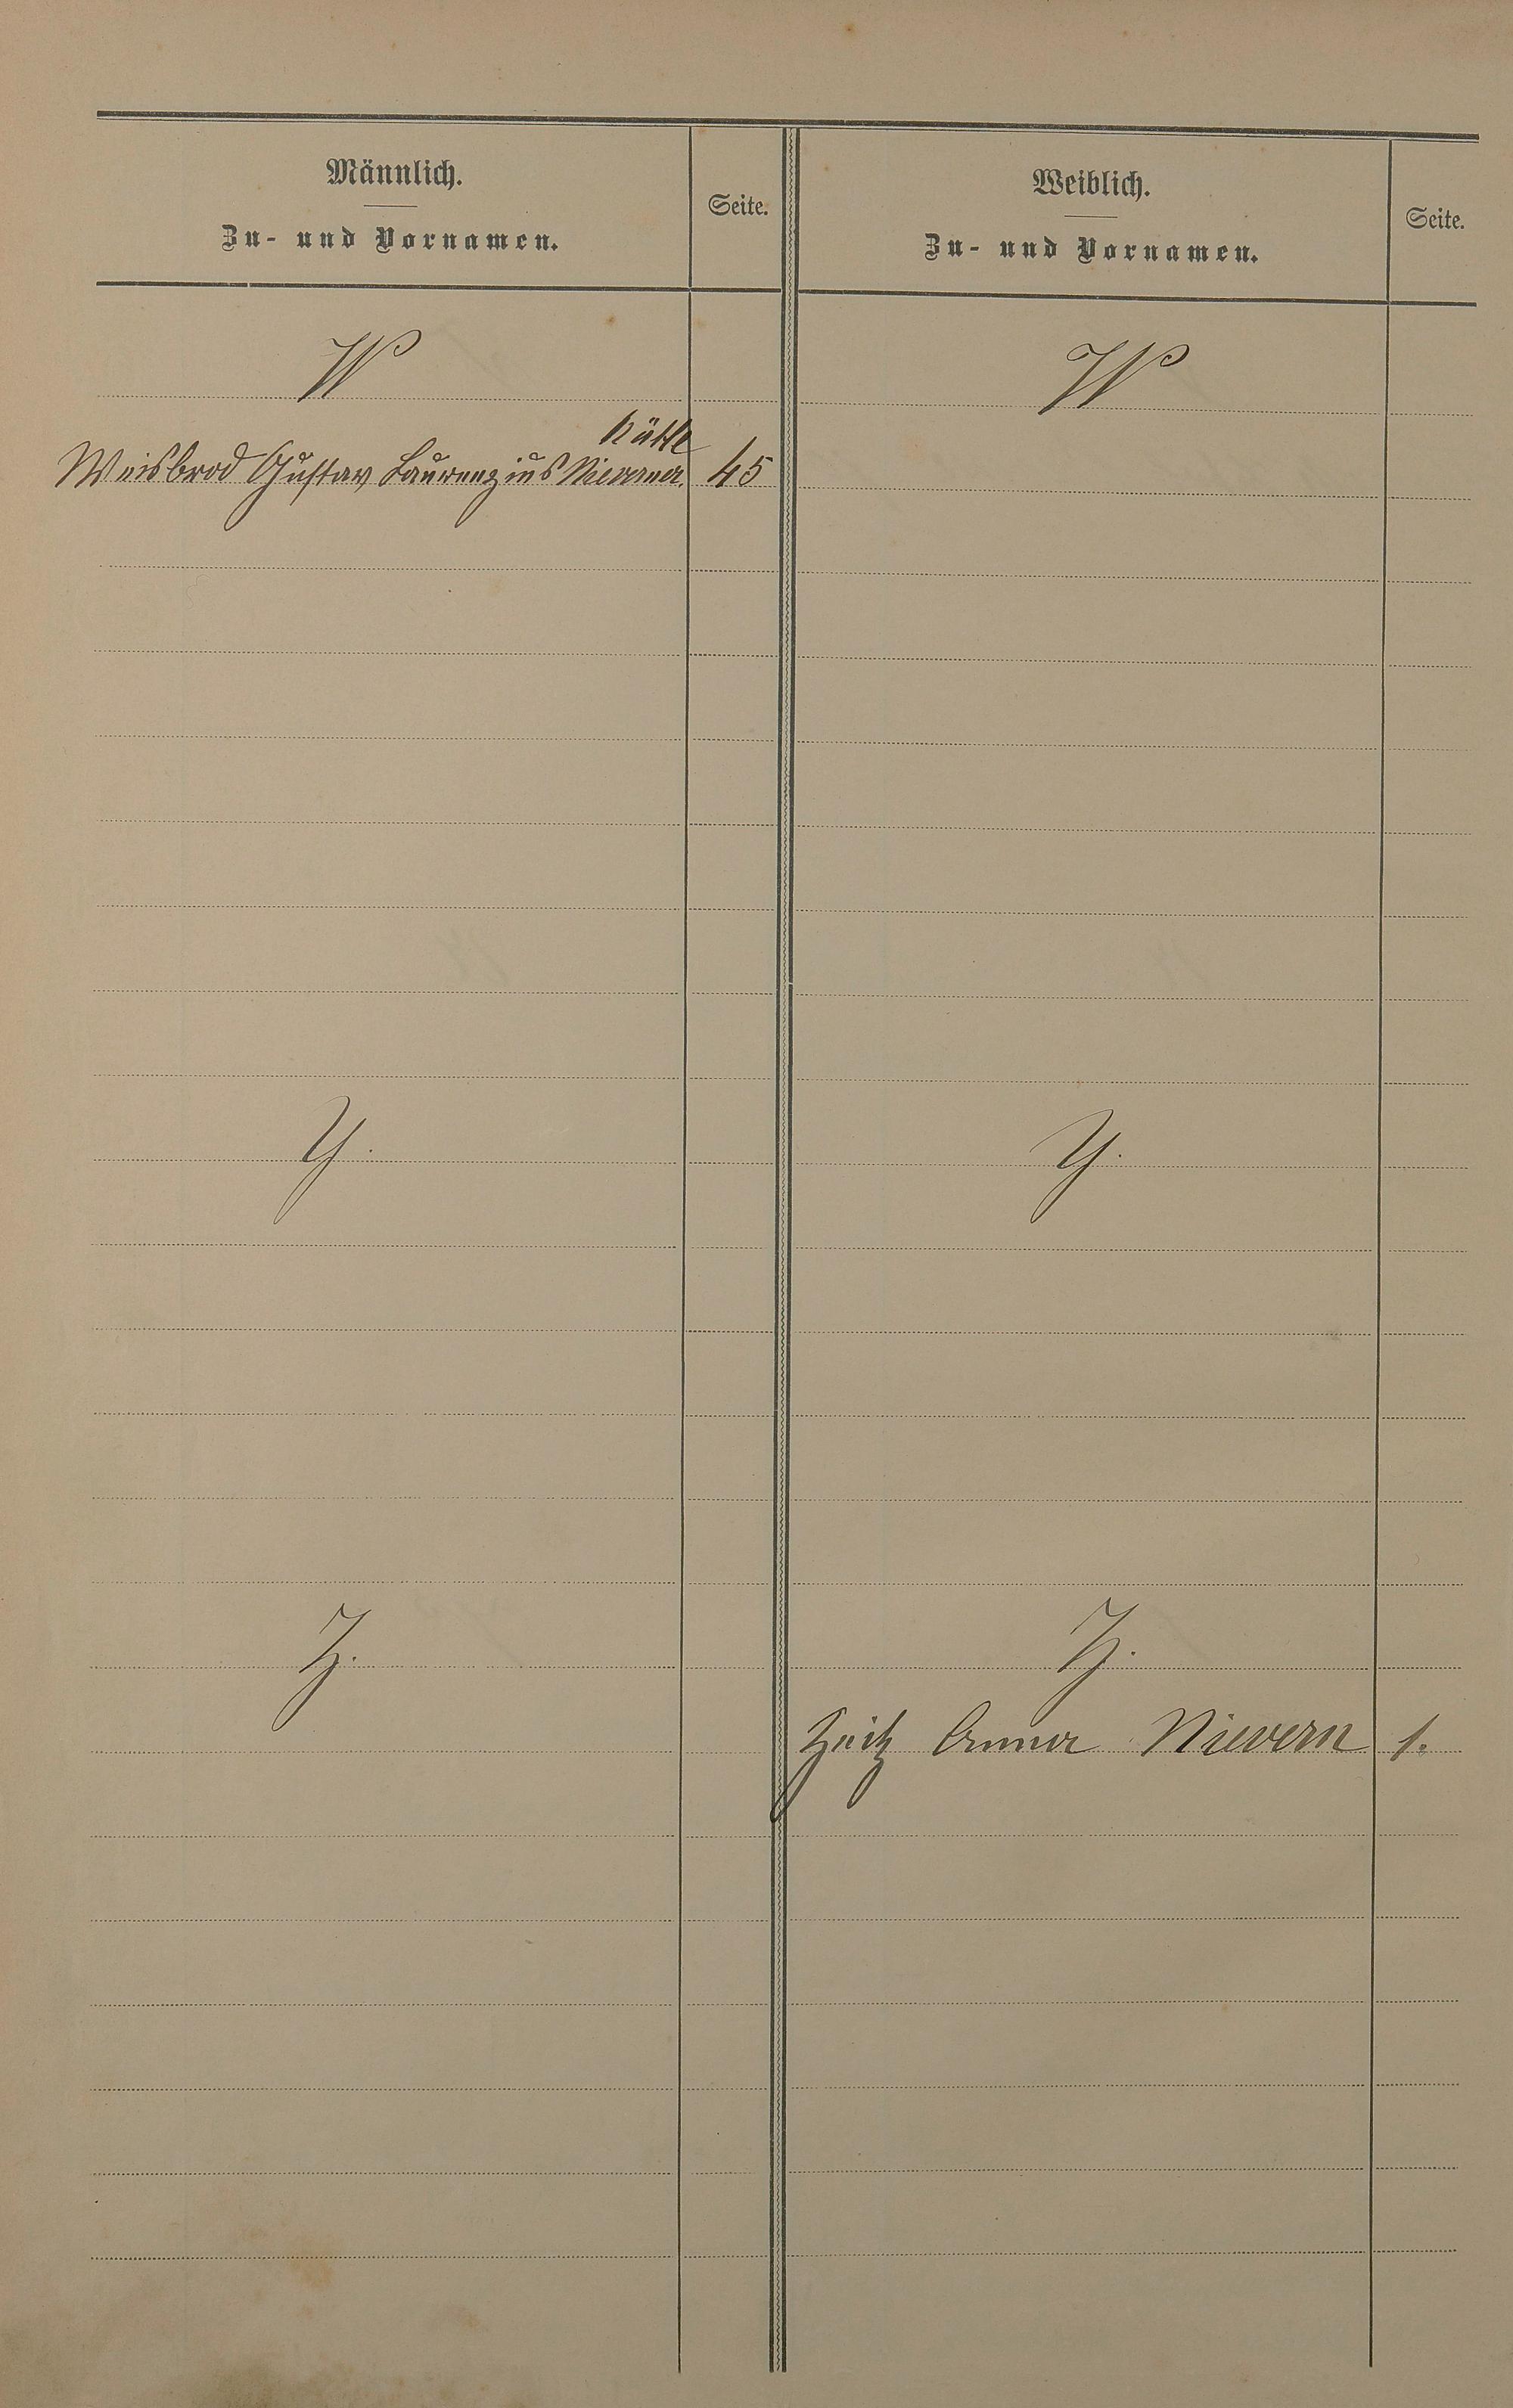 Männlich.
Zu- und Vornamen.
Seite.
Weiblich.
Zu- und Vornamen.
Seite.
W
W
Hütte
Weisbrod Gustav Laurenzius Nieverner 45
Y.
Y.
Z.
Z.
Zeitz Anna Nievern 1.